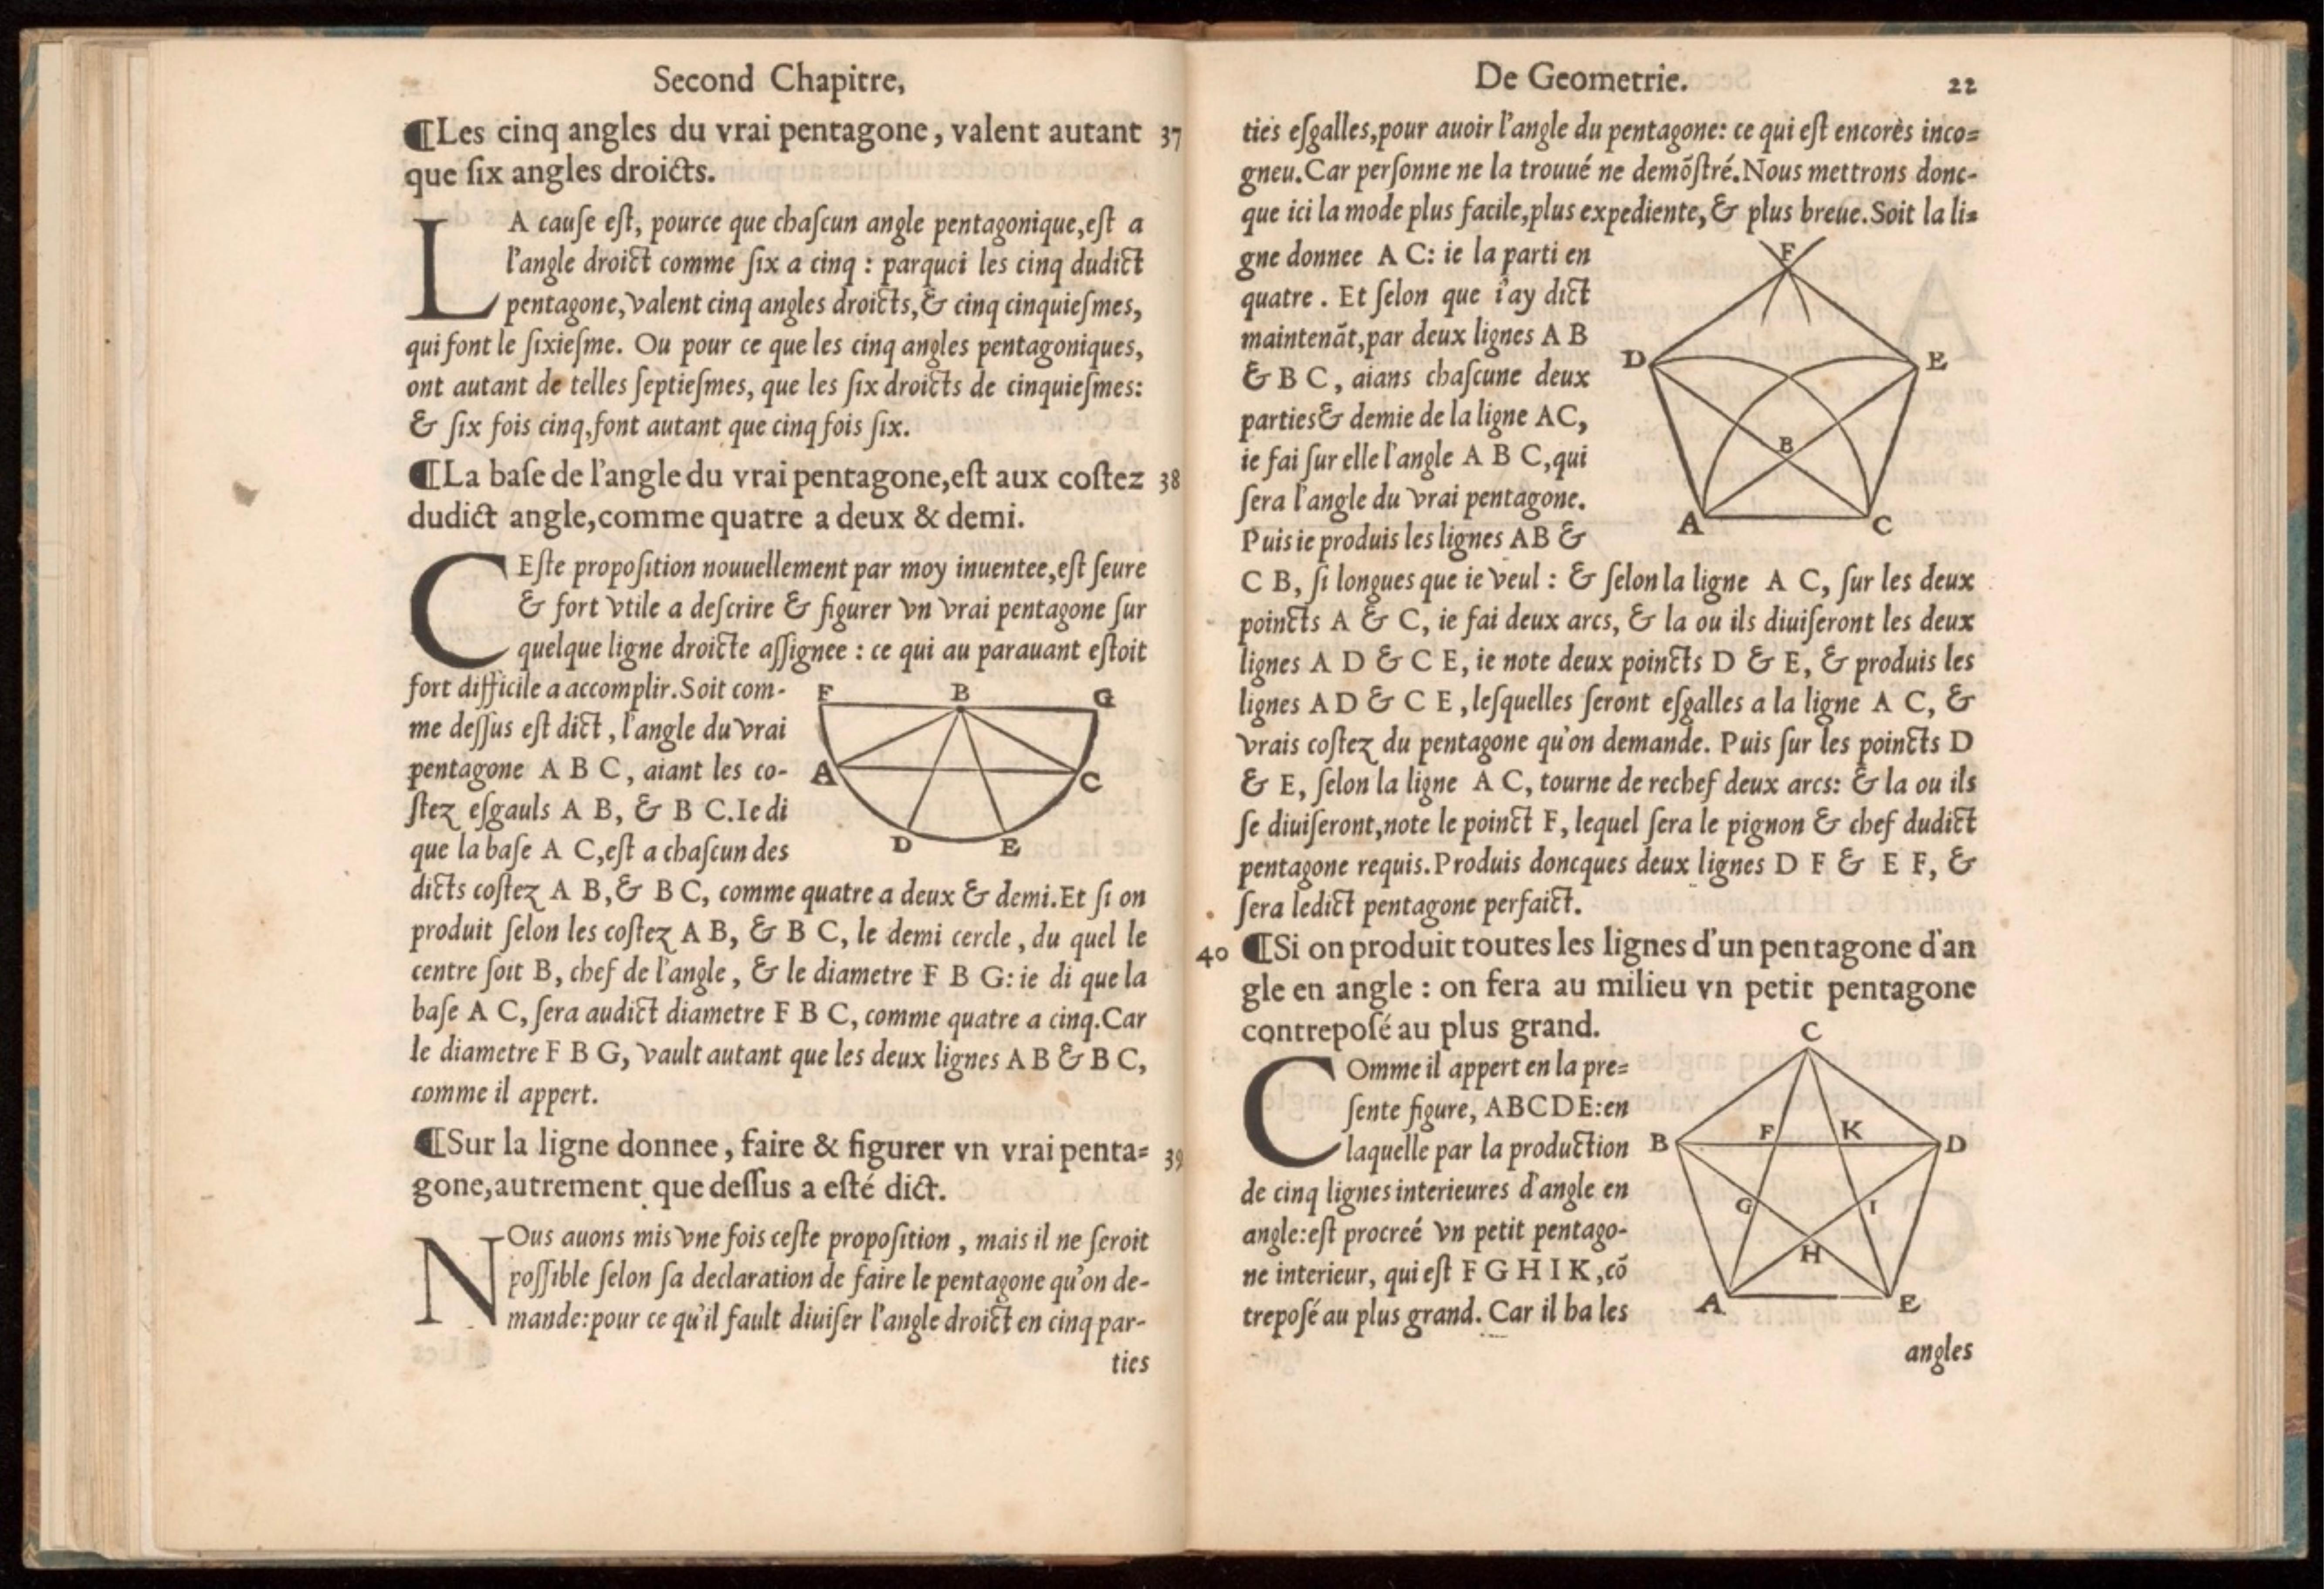 Second Chapitre,
¶Les cinq angles du vrai pentagone, valent autant 37
que ſix angles droicts.
LA cauſe eſt, pource que chaſcun angle pentagonique,eſt a
l'angle droict comme ſix a cinq : parquoi les cinq dudict
pentagone,valent cinq angles droicts,& cinq cinquieſmes,
qui font le ſixieſme. Ou pour ce que les cinq angles pentagoniques,
ont autant de telles ſeptieſmes, que les ſix droicts de cinquieſmes:
& ſix fois cinq,font autant que cinq fois ſix.
¶La baſe de l'angle du vrai pentagone,eſt aux coſtez 38
dudict angle,comme quatre a deux & demi.
CEſte propoſition nouuellement par moy inuentee,eſt ſeure
& fort vtile a deſcrire & figurer vn vrai pentagone ſur
quelque ligne droicte aſſignee : ce qui au parauant eſtoit
fort difficile a accomplir.Soit com-
me deſſus eſt dict, l'angle du vrai
pentagone A B C, aiant les co-
ſtez eſgauls A B, & B C.Ie di
que la baſe A C,eſt a chaſcun des
F B G
A C
D E
dicts coſtez A B,& B C, comme quatre a deux & demi.Et ſi on
produit ſelon les coſtez A B, & B C, le demi cercle, du quel le
centre ſoit B, chef de l'angle, & le diametre F B G: ie di que la
baſe A C, ſera audict diametre F B C, comme quatre a cinq.Car
le diametre F B G, vault autant que les deux lignes A B & B C,
comme il appert.
¶Sur la ligne donnee, faire & figurer vn vrai penta= 39
gone,autrement que deſſus a eſté dict.
NOus auons mis vne fois ceſte propoſition, mais il ne ſeroit
poſſible ſelon ſa declaration de faire le pentagone qu'on de-
mande:pour ce qu'il fault diuiſer l'angle droict en cinq par-
ties
De Geometrie. 22
ties eſgalles,pour auoir l'angle du pentagone: ce qui eſt encorès inco=
gneu.Car perſonne ne la trouué ne demõſtré.Nous mettrons donc-
que ici la mode plus facile,plus expediente,& plus breue.Soit la li=
gne donnee A C: ie la parti en
quatre. Et ſelon que i'ay dict
maintenãt,par deux lignes A B
& B C, aians chaſcune deux
parties& demie de la ligne AC,
ie fai ſur elle l'angle A B C,qui
ſera l'angle du vrai pentagone.
Puis ie produis les lignes AB &
F
D E
B
A C
C B, ſi longues que ie veul : & ſelon la ligne A C, ſur les deux
poincts A & C, ie fai deux arcs, & la ou ils diuiſeront les deux
lignes A D & C E, ie note deux poincts D & E, & produis les
lignes A D & C E, leſquelles ſeront eſgalles a la ligne A C, &
vrais coſtez du pentagone qu'on demande. Puis ſur les poincts D
& E, ſelon la ligne A C, tourne de rechef deux arcs: & la ou ils
ſe diuiſeront,note le poinct F, lequel ſera le pignon & chef dudict
pentagone requis.Produis doncques deux lignes D F & E F, &
ſera ledict pentagone perfaict.
40 ¶Si on produit toutes les lignes d'un pentagone d'an
gle en angle : on fera au milieu vn petit pentagone
contrepoſé au plus grand.
COmme il appert en la pre=
ſente figure, ABCDE:en
laquelle par la production
de cinq lignes interieures d'angle en
angle:eſt procreé vn petit pentago-
ne interieur, qui eſt F G H I K,cõ
trepoſé au plus grand. Car il ha les
C
B F K D
G I
H
A E
angles